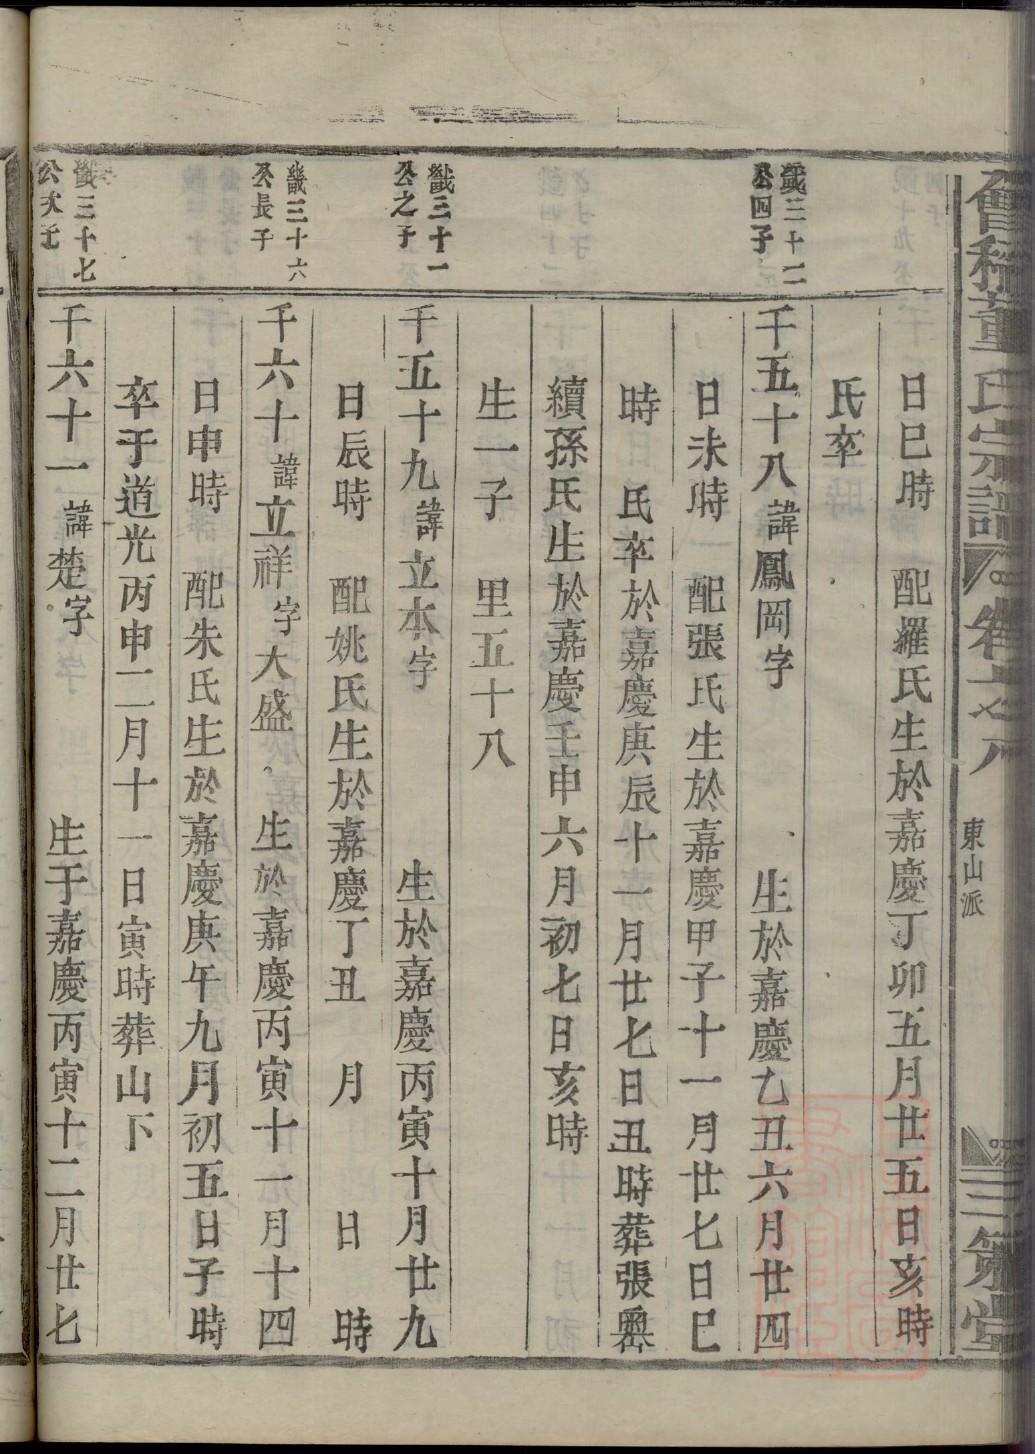 會稽董氏宗譜
東山派
三策堂
日巳時　配羅氏生於嘉慶丁卯五月廿五日亥時
氏卒
鐡三十二
公四子
千五十八諱鳳岡字　生於嘉慶乙丑六月廿四
日未時　配張氏生於嘉慶甲子十一月廿七日巳
時　氏卒於嘉慶庚辰十一月廿七日丑時葬張
續孫氏生於嘉慶壬申六月初七日亥時
生一子　里五十八
鐡三十一
公之子
千五十九諱立本字　生於嘉慶丙寅十月廿九
日辰時　配姚氏生於嘉慶丁丑　月　日　時
鐡三十六
公長子
千六十諱立祥字大盛　生於嘉慶丙寅十一月十四
日申時　配朱氏生於嘉慶庚午九月初五日子時
卒于道光丙申二月十一日寅時葬山下
鐡三十七
公次子
千六十一諱楚字　生于嘉慶丙寅十二月廿七